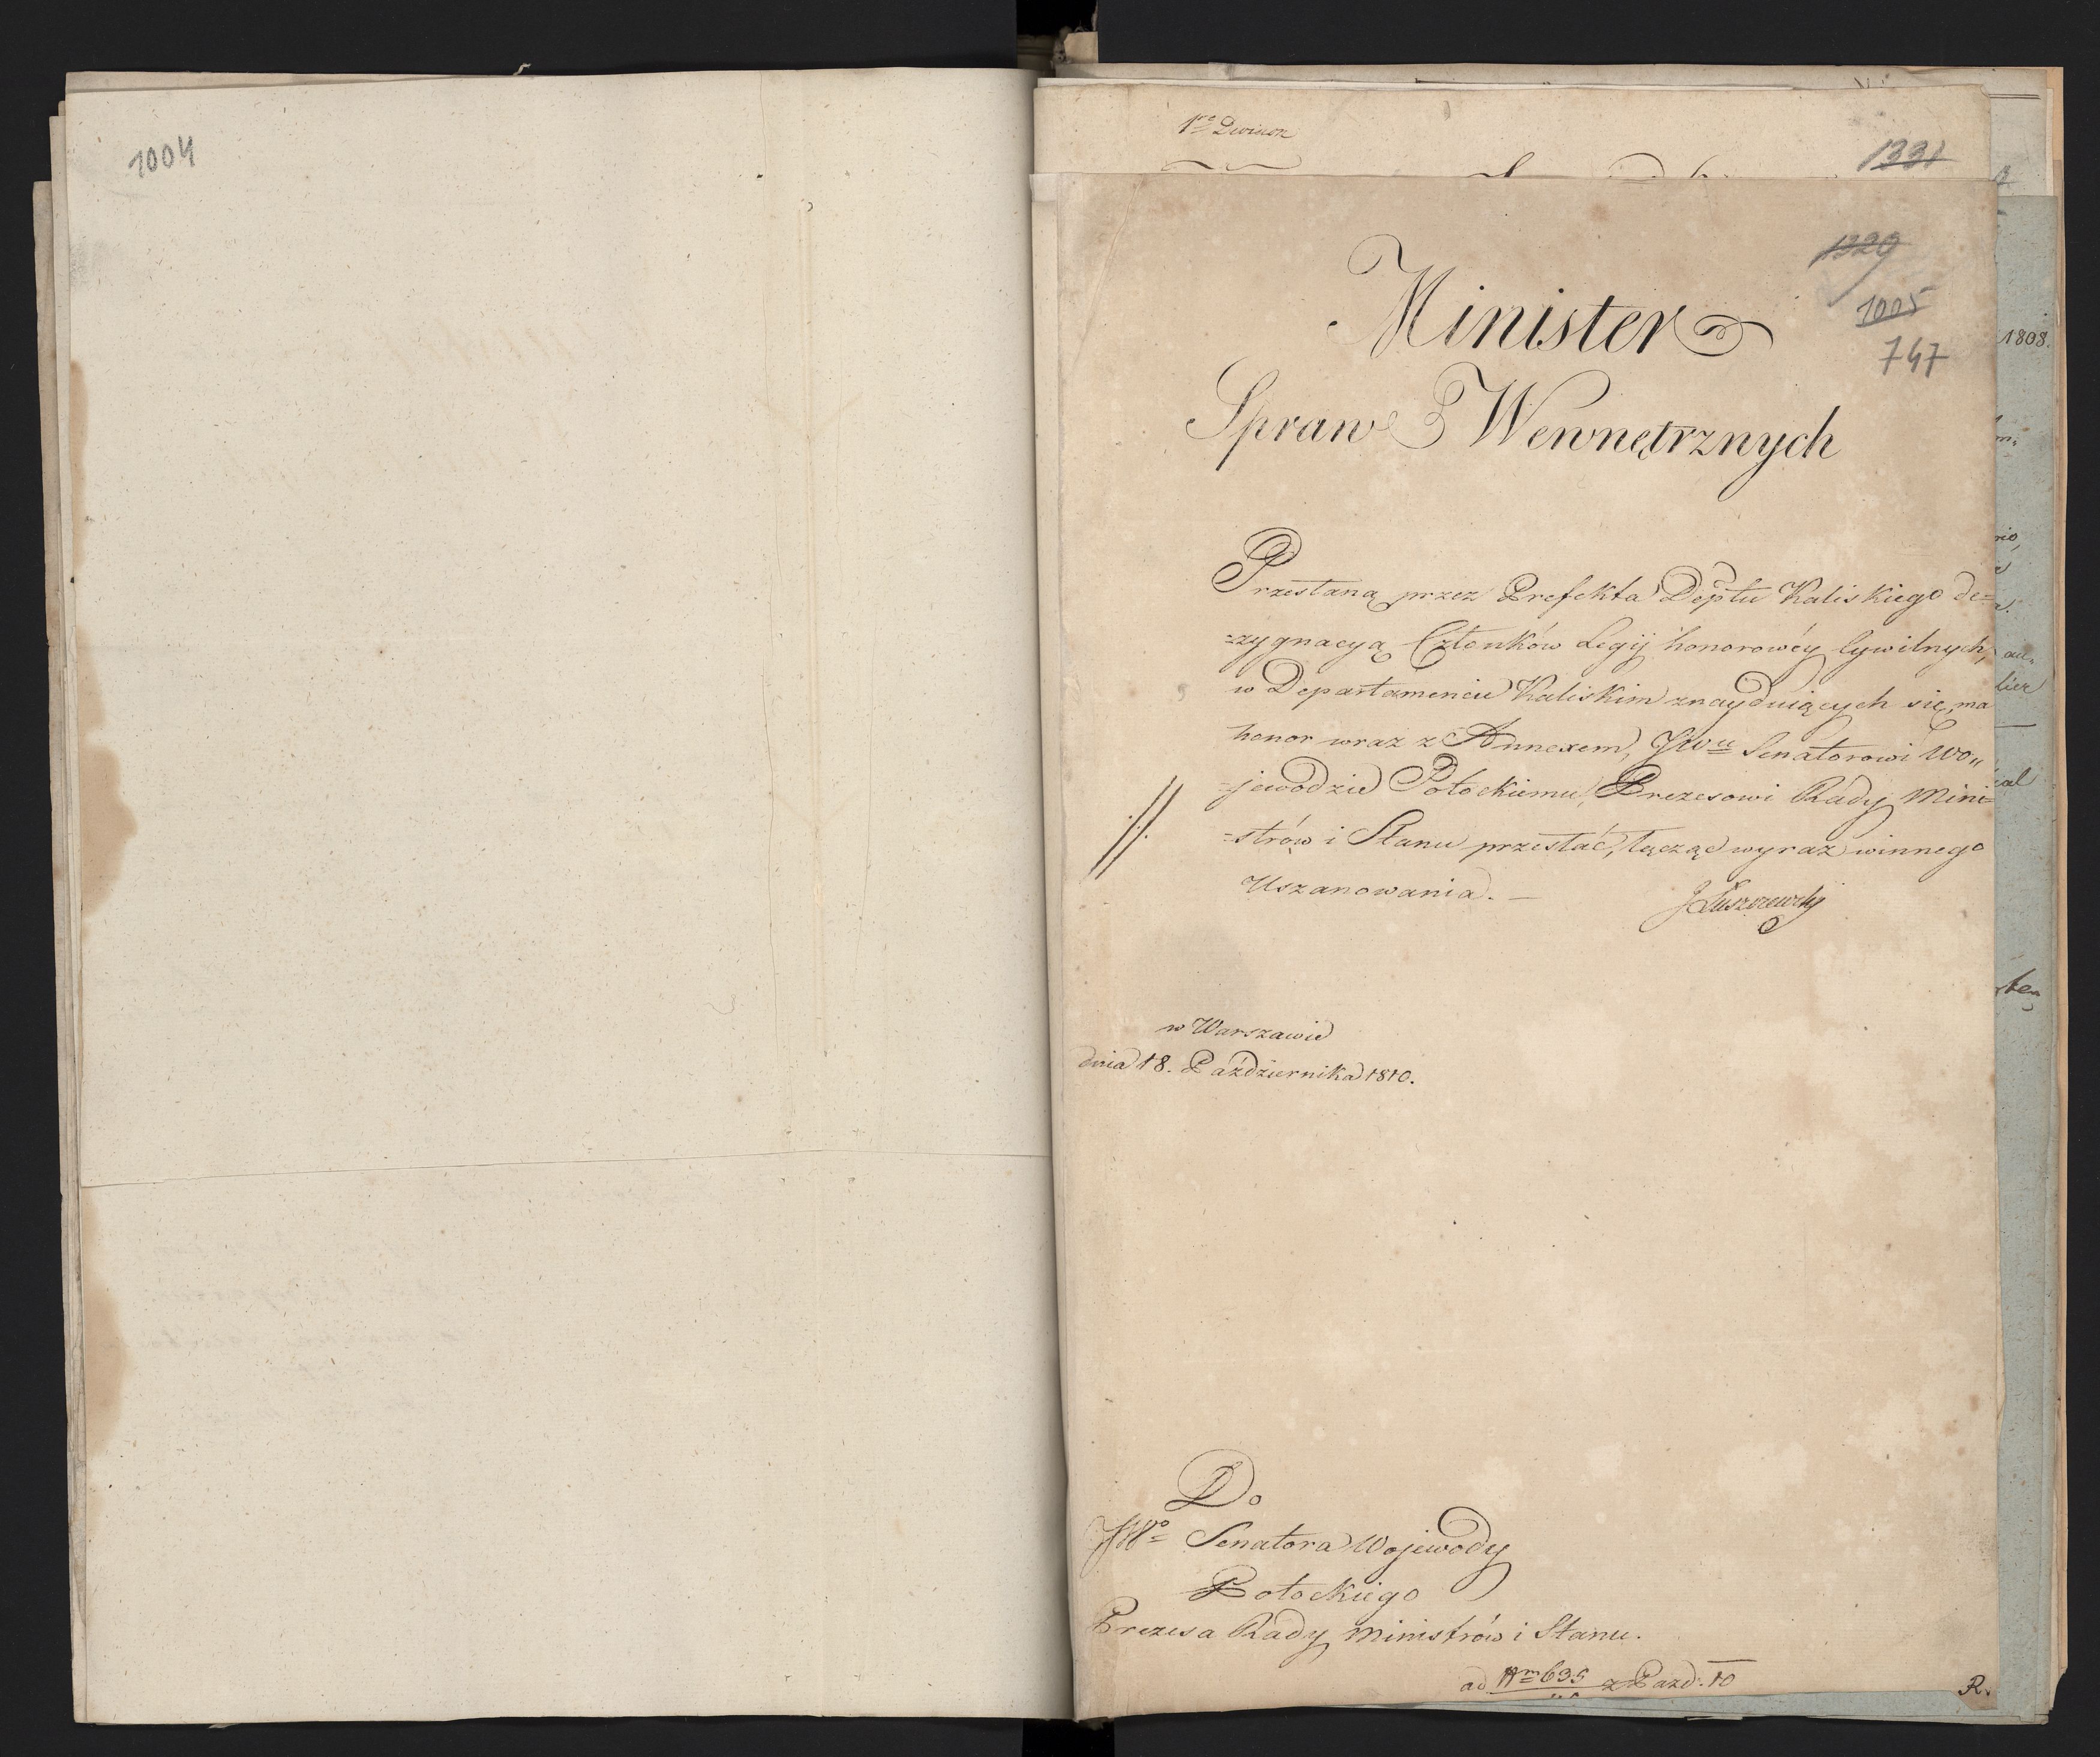 1004
1re Division
1331
1329
1005
747
Minister
Spraw Wewnętrznych
Przesłaną przez Prefekta Deptu Kaliskiego de=
=zygnacyą Członków Legij honorowéy Cywilnych,
w Departamencie Kaliskim znayduiących się, ma
honor wraz z Annexem, JWu Senatorowi Wo„
=jewodzie Potockiemu, Prezesowi Rady Mini=
=strów i Stanu przesłać, łącząc wyraz winnego
Uszanowania. —
JŁuszczewski
w Warszawie
dnia 18. Października 1810.
Do
JWo Senatora Wojewody
Potockiego
Prezesa Rady Ministrów i Stanu.
ad Nm 695 z Pazd: 10
R.
1808.